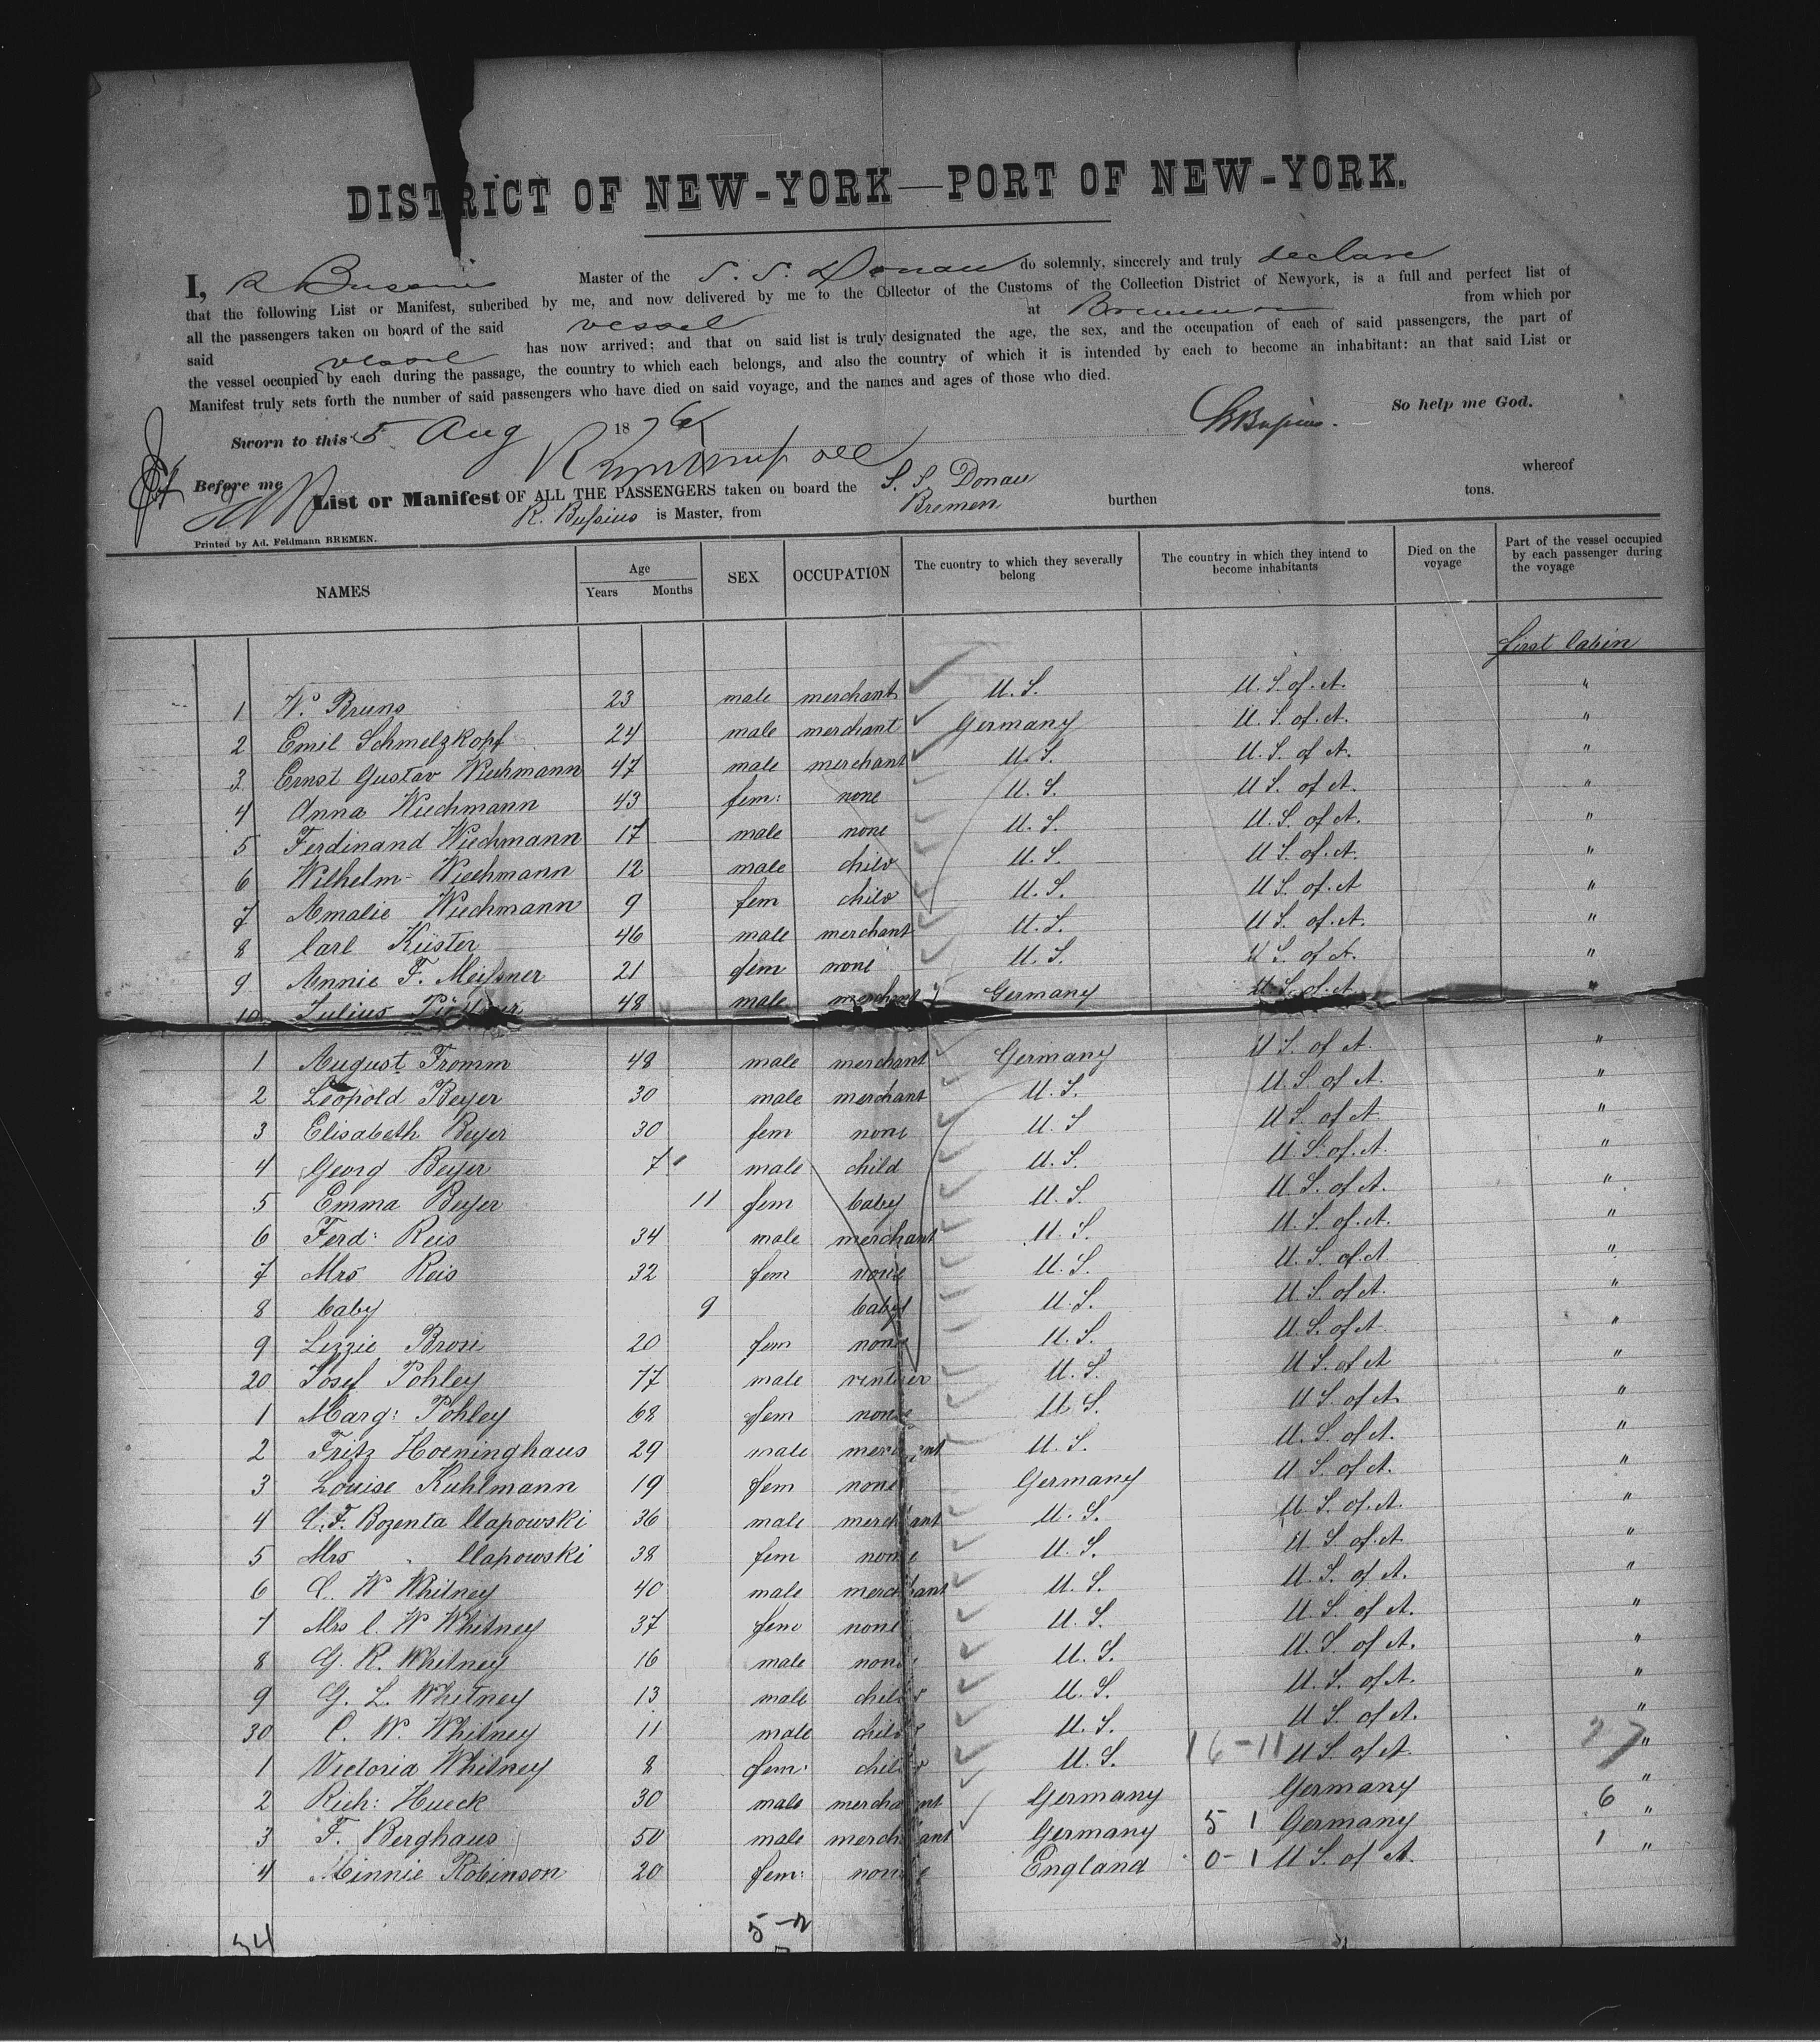 DISTRICT OF NEW-YORK—PORT OF NEW-YORK.
I, R Bussius Master of the S. S. Donau do solemnly, sincerely and truly declare
that the following List or Manifest, subcribed by me, and now delivered by me to the Collector of the Customs of the Collection District of Newyork, is a full and perfect list of
all the passengers taken on board of the said vessel at Bremen from which por
said vessel has now arrived; and that on said list is truly designated the age, the sex, and the occupation of each of said passengers, the part of
the vessel occupied by each during the passage, the country to which each belongs, and also the country of which it is intended by each to become an inhabitant: an that said List or
Manifest truly sets forth the number of said passengers who have died on said voyage, and the names and ages of those who died.
So help me God.
Sworn to this 5 Aug 1876 Bussius.
Before me
List or Manifest OF ALL THE PASSENGERS taken on board the S. S. Donau whereof
R. Bussius is Master, from Bremen burthen tons.
Printed by Ad. Feldmann BREMEN.
NAMES Age Years Months SEX OCCUPATION The cuontry to which they severally belong The country in which they intend to become inhabitants Died on the voyage Part of the vessel occupied by each passenger during the voyage
first Cabin
1 W. Bruns 23 male merchant U. S. U. S. of. A. "
2 Emil Schmelzkopf 24 male merchant Germany U. S. of. A. "
3 Ernst Gustav Wiechmann 47 male merchant U. S. U. S. of A. "
4 Anna Wiechmann 43 fem: none U. S. U S. of A. "
5 Ferdinand Wiechmann 17 male none U. S. U. S. of A. "
6 Wilhelm Wiechmann 12 male child U. S. U S. of. A. "
7 Amalie Wiechmann 9 fem child U. S. U S. of. A "
8 Carl Küster 46 male merchant U. S. U S. of. A. "
9 Annie F. Meissner 21 fem none U. S. U S. of A. "
10 Julius 48 male merchant Germany U. S. of. A "
1 August Fromm 48 male merchant Germany U S. of A. "
2 Leopold Beyer 30 male merchant U. S. U. S. of A. "
3 Elisabeth Beyer 30 fem none U. S U S. of A. "
4 Georg Beyer 7 male child U. S. U. S. of. A. "
5 Emma Beyer 11 fem baby U. S. U. S. of A. "
6 Ferd: Reis 34 male merchant U. S. U. S. of. A. "
7 Mrs Reis 32 fem none U. S. U. S. of. A "
8 baby 9 baby U. S. U S. of A. "
9 Lizzie Brosi 20 fem none U. S. U. S. of A "
20 Josef Pohley 77 male rentier U. S. U S. of A "
1 Marg: Pohley 68 fem none U S. U S. of A. "
2 Fritz Hoeninghaus 29 male merchant U. S. U. S. of A. "
3 Louise Kuhlmann 19 fem none Germany U S. of A. "
4 C. F. Bozenta Clapowski 36 male merchant U. S. U S. of. A. "
5 Mrs Clapowski 38 fem none U. S. U S. of. A "
6 C. W Whitney 40 male merchant U. S. U. S. of A. "
7 Mrs C. W Whitney 37 fem none U. S. U. S. of A. "
8 G. R. Whitney 16 male none U. S. U. S. of A. "
9 G. L. Whitney 13 male child U. S. U. S. of A. "
30 C. W. Whitney 11 male child U. S. U S. of A. "
1 Victoria Whitney 8 fem. child U. S. 16-11 U S. of A. 27 "
2 Rich: Hueck 30 male merchant Germany Germany 6 "
3 F. Berghaus 50 male merchant Germany 5 1 Germany 1 "
4 Minnie Robinson 20 fem: none England 0-1 U S. of A. "
34